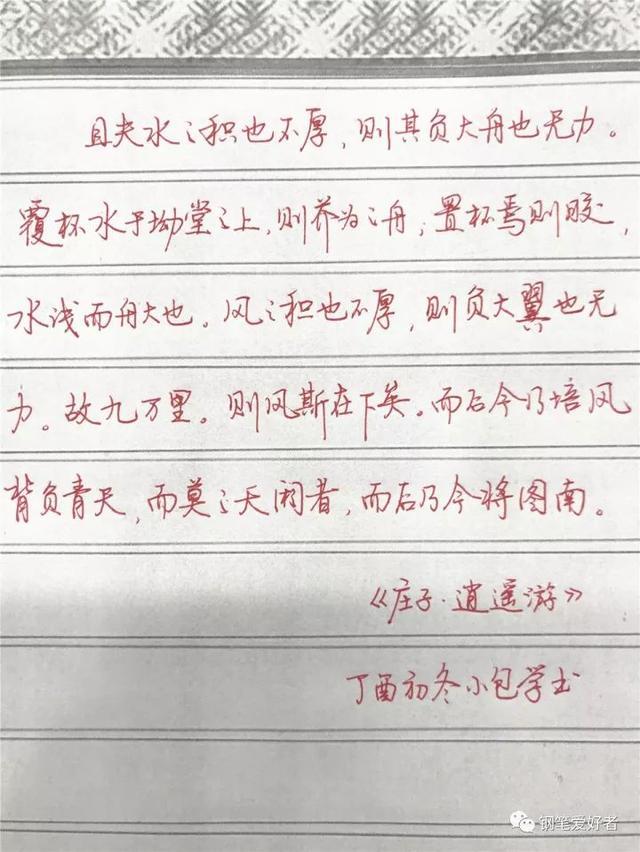 且夫水之积也不厚，则其负大舟也无力。
覆杯水于坳堂之上，则芥为之舟；置杯焉则胶，
水浅而舟大也。风之积也不厚，则负大翼也无
力。故九万里。则风斯在下矣。而后今乃培风
背负青天，而莫之夭阏者，而后乃今将图南。
《庄子·逍遥游》
丁酉初冬小包学书
钢笔爱好者